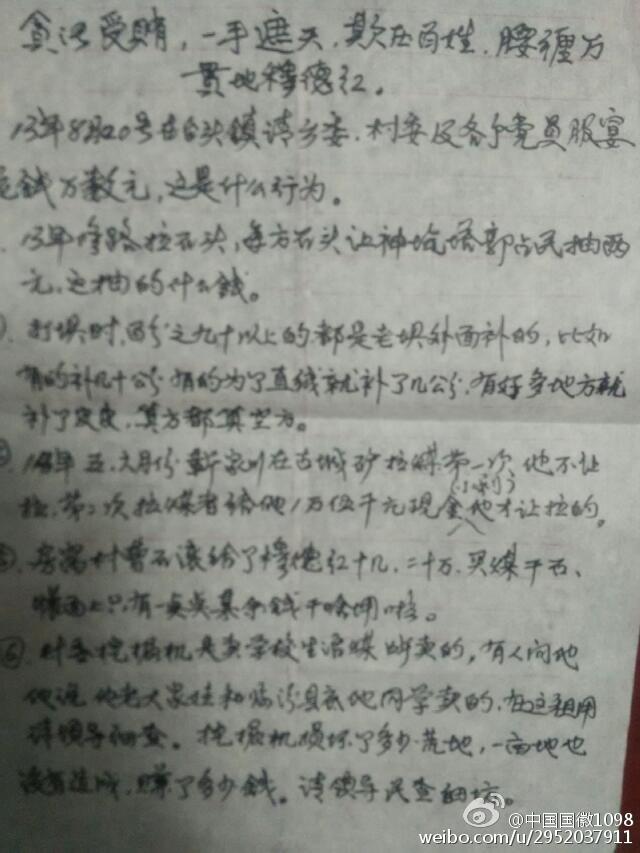 贪污受贿，一手遮天，欺压百姓，腰缠万
贯地穆德红。
13年8月20号在台头镇请乡委，村委及各个党员服宴
花钱万数元，这是什么行为。
13年修路拉石头，每方石头让神坑塔郭占民抽两
元，这抽的什么钱。
打坝时，百分之九十以上的都是老坝外面补的，比如
有的补几十公分有的为了直线就补了几公分，有好多地方就
补了皮皮，算方都算空方。
五、六月份 在古城矿拉煤第一次他不让
拉，第二次拉煤者给他1万伍千元现金他才让拉的。
(小利)
村曹石滚给了穆德红十几、二十万，买煤干石、
有一点点 钱干啥用啦。
⑥ 村委挖掘机是卖学校生活煤 卖的，有人问他
他说他老大家娃和临汾县底他同学卖的，在这租用
请领导细查。挖掘机损坏了多少荒地，一亩地也
没有造成，赚了多少钱。请领导 查细访。
@中国国徽1098
weibo.com/u/2952037911